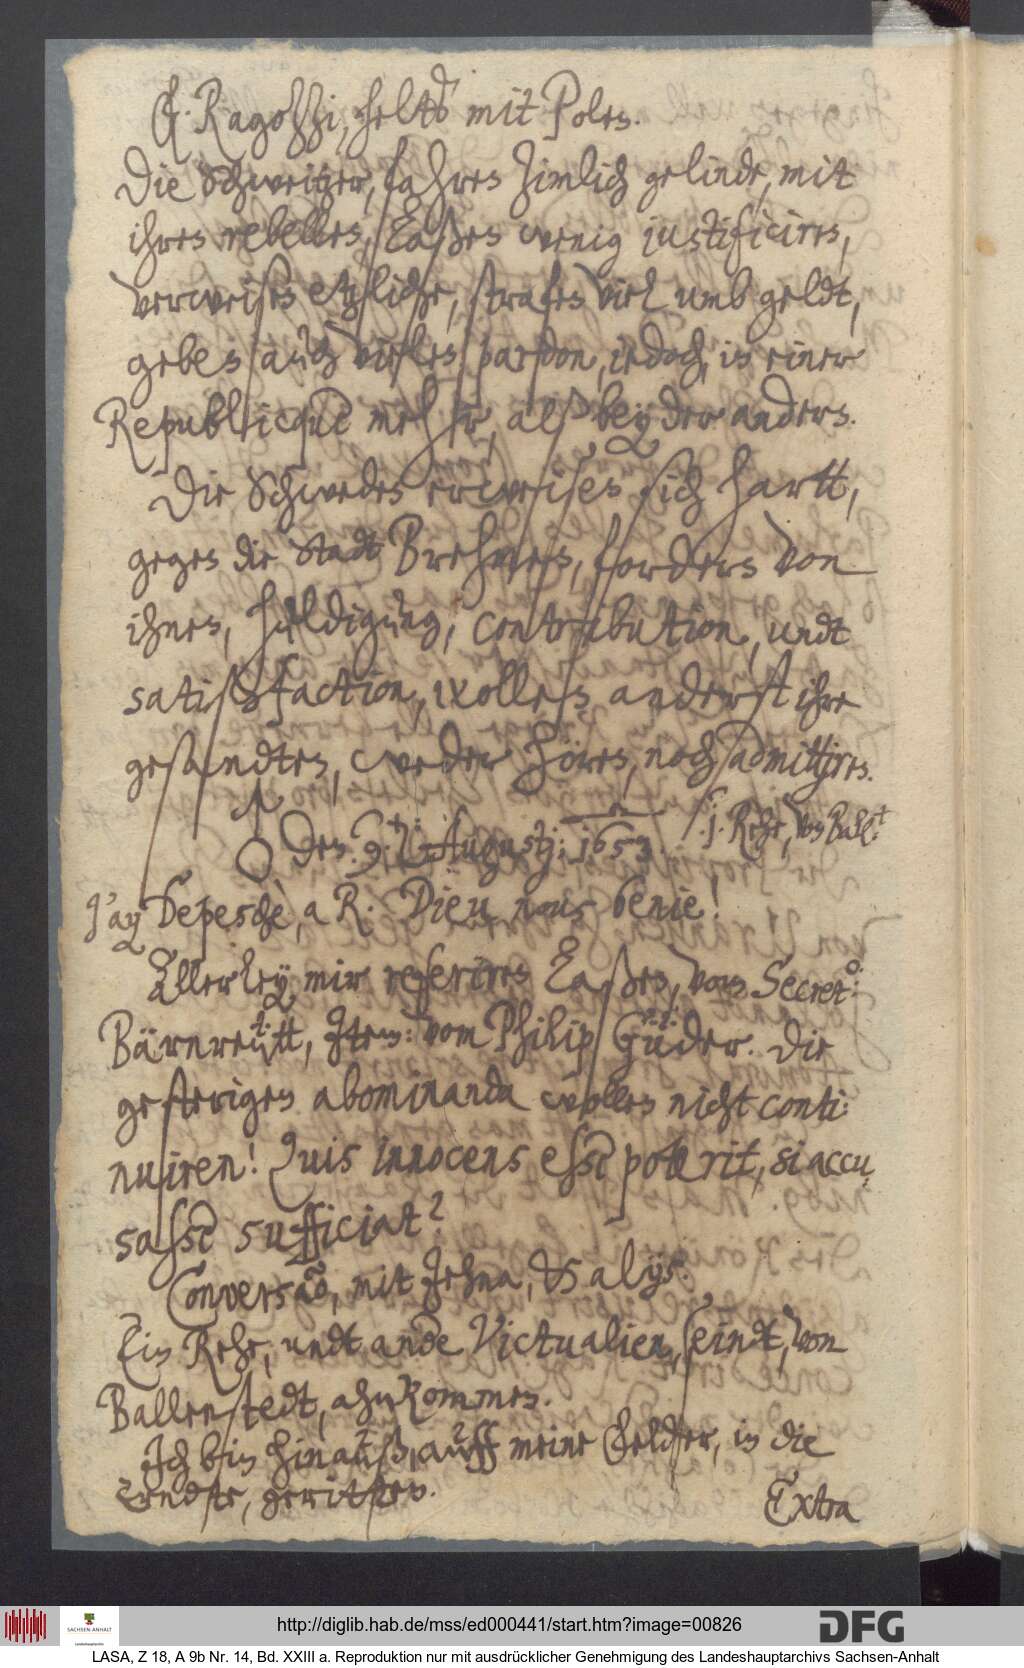 F. Ragozzi, helts mit Polen.
Die Schweitzer, fahren zimlich gelinde, mit
ihren rebellen, Laßen wenig justificiren,
verweisen etzliche, strafen viel umb geldt,
geben auch vielen pardon, iedoch, in einer
Republicque mehr, alß bey der anders.
Die Schweden erweisen sich hartt,
gegen die Stadt Brehmen, fordern von
ihnen, huldigung, contribution, undt
satisfaction, wollen anderst ihre
gesandten, weder hören, noch admittiren.
♂ den 9. Augustj: 1653.
1. Rehe, von Ball:t
J'ay depesché, a R. Dieu nous benie!
Allerley mir referiren Laßen, vom Secret:o
Bärnreutt, Item: vom Philip Güder. Die
gesterigen abominanda wollen nicht conti:
nuiren! Quis innocens esse poterit, si accu
sasse sufficiat?
Conversado, mit Jehna, & alijs.
Ein Rehe, undt ande Victualien, seindt, von
Ballenstedt, ahnkommen.
Ich bin hinauß, auff meine Felder, in die
Erndte, geritten.
Extra
http://diglib.hab.de/mss/ed000441/start.htm?image=00826
SACHSEN-ANHALT
Landeshauptarchiv
DFG
LASA, Z 18, A 9b Nr. 14, Bd. XXIII a. Reproduktion nur mit ausdrücklicher Genehmigung des Landeshauptarchivs Sachsen-Anhalt